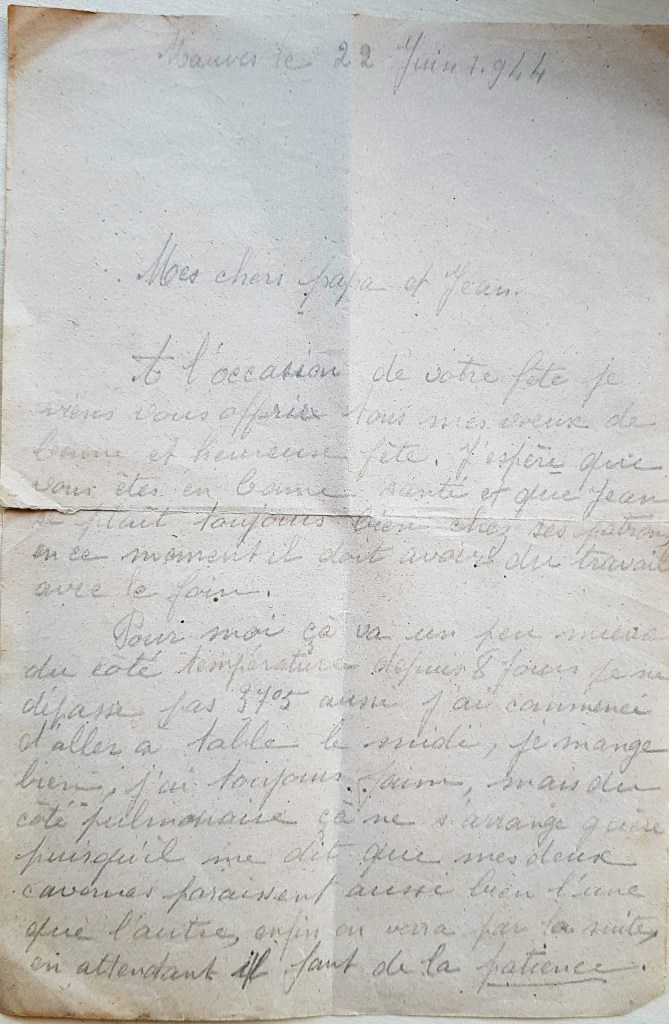 Mauves le 22 Juin 1.944
Mes chers papa et Jean.
A l'occasion de votre fête je
viens vous offrir tous mes voeux de
bonne et heureuse fête. J'espère que
vous êtes en bonne santé et que Jean
se plaît toujours bien chez ses patrons
en ce moment il doit avoir du travail
avec le foin.
Pour moi çà va un peu mieux
du coté température depuis 8 jours je ne
dépasse pas 37°5 aussi j'ai commencé
d'aller à table le midi, je mange
bien, j'ai toujours faim, mais du
côté pulmonaire çà ne s'arrange guère
puisqu'il me dit que mes deux
cavernes paraissent aussi bien l'une
que l'autre, enfin on verra par la suite,
en attendant il faut de la patience.